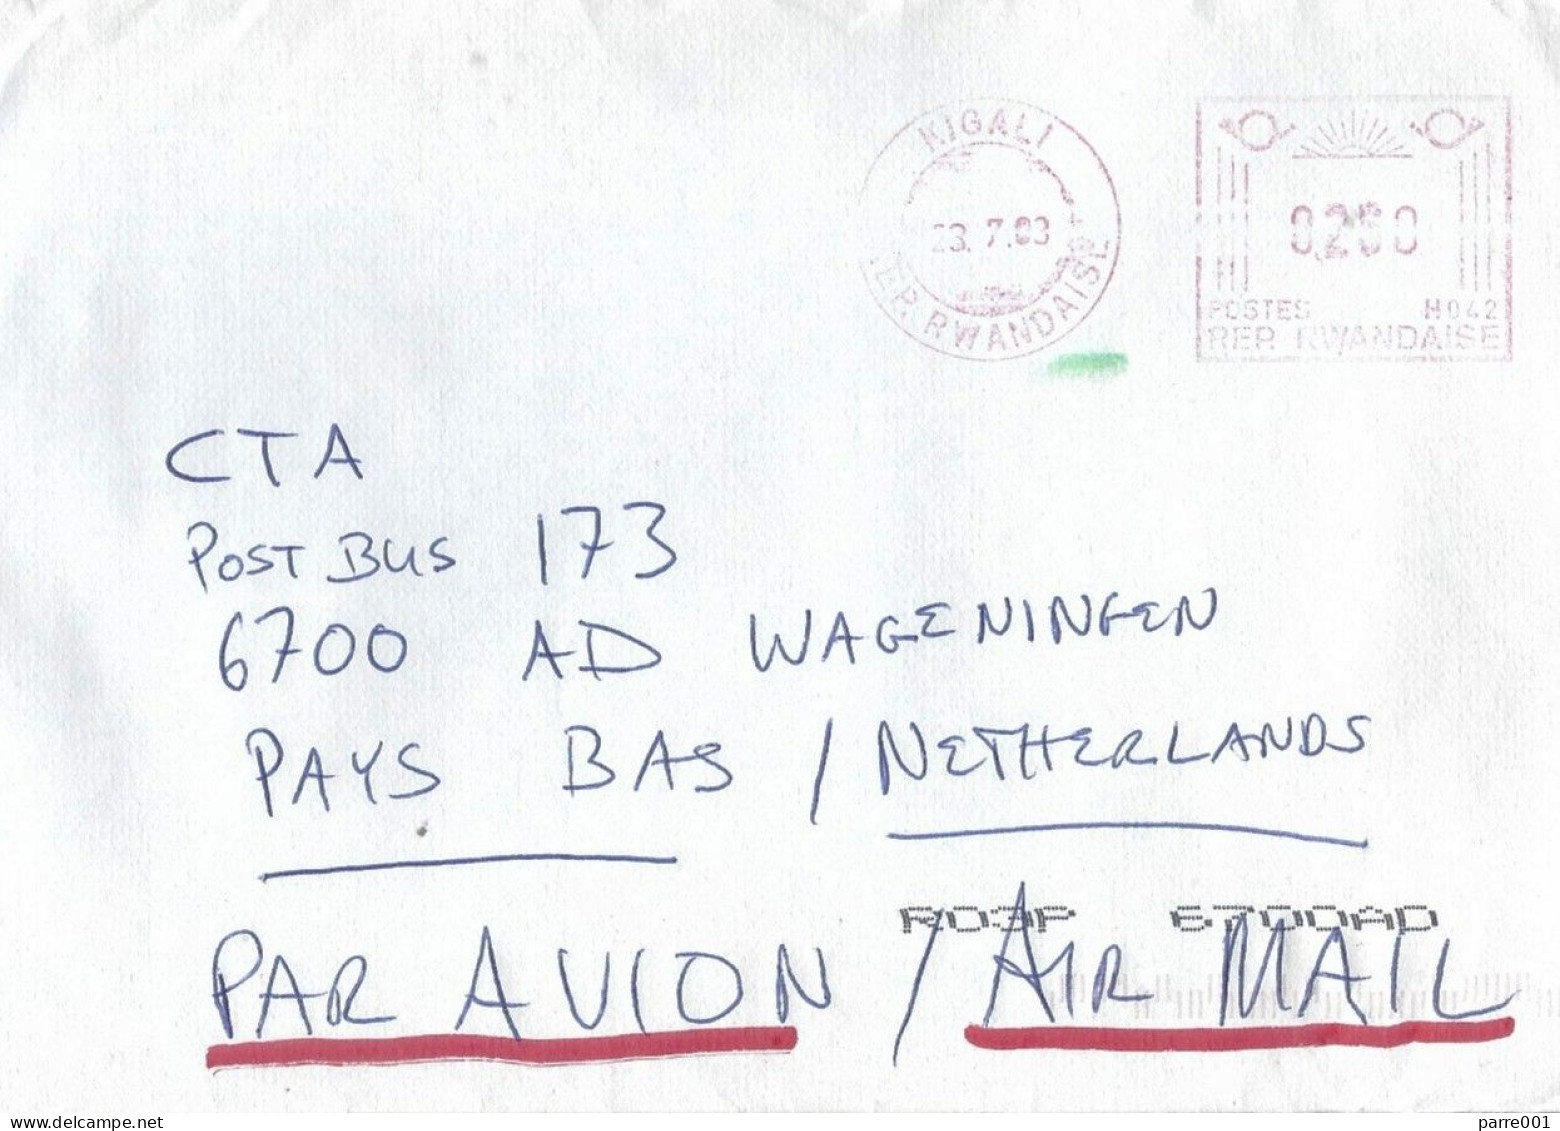 KIGALI
23.7.03
REP. RWANDAISE
0250
POSTES H042
REP. RWANDAISE
CTA
POST BUS 173
6700 AD WAGENINGEN
PAYS BAS / NETHERLANDS
RD3P 6700AD
PAR AVION / AIR MAIL
delcampe.net
parre001